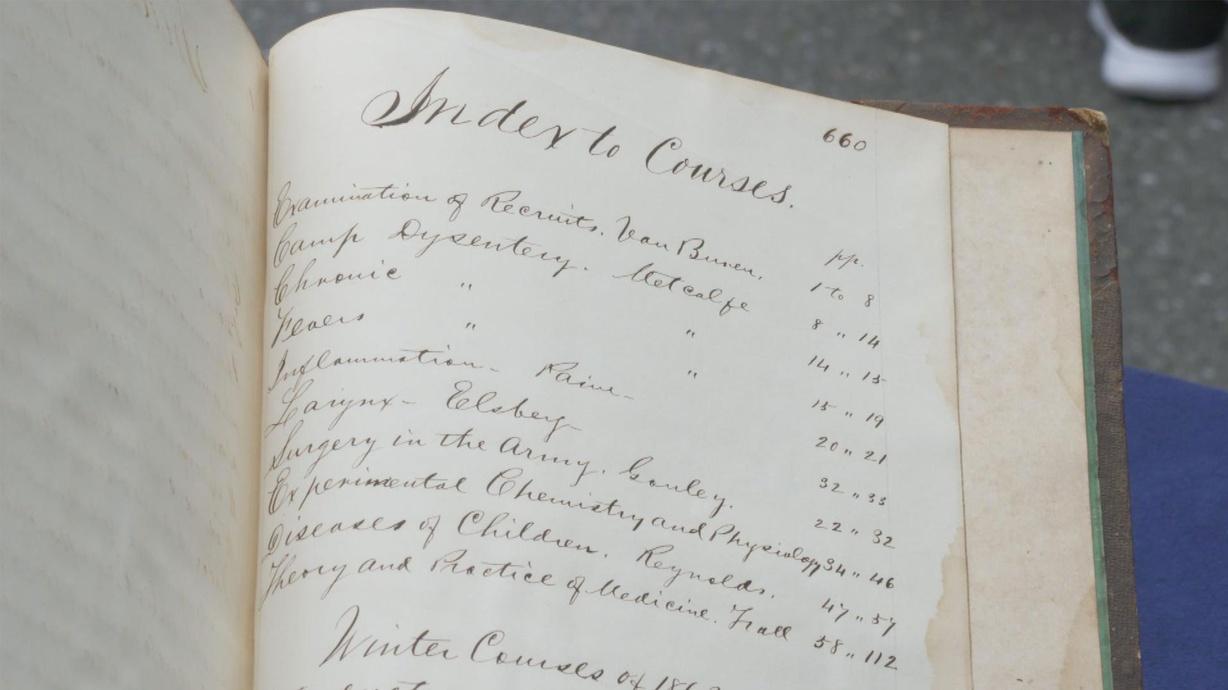 660
Index to Courses.
pp.
Examination of Recruits. Van Buren. 1 to 8
Camp Dysentery. Metcalfe 8 " 14
Chronic " " 14 " 15
Fevers " " 15 " 19
Inflammation - Raine - 20 " 21
Larynx - Elsberg - 32 " 33
Surgery in the Army. Gouley. 22 " 32
Experimental Chemistry and Physiology 34 " 46
Diseases of Children. Reynolds. 47 " 57
Theory and Practice of Medicine. 58 " 112
Winter Courses of